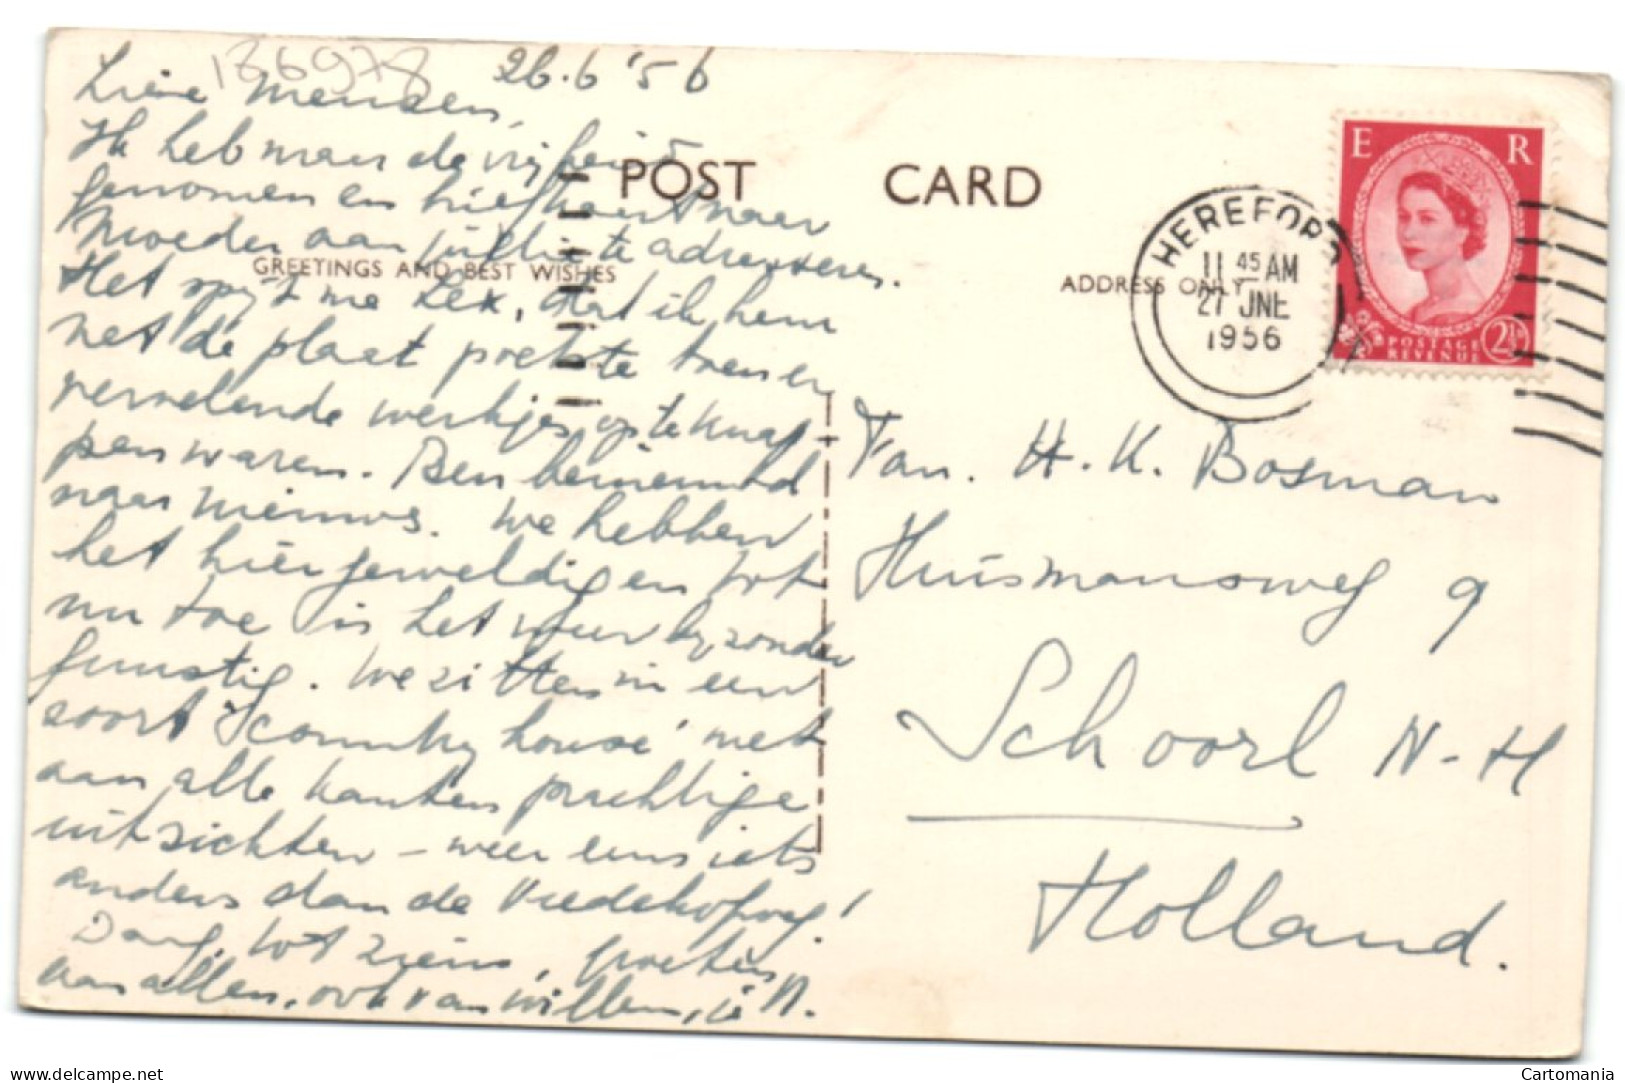 136978
26.6 '56
Lieve Mensen,
Ik heb maar de vrijheid
genomen en briefkaart naar
Moeder aan jullie te adresseren.
Het spijt me Lex, dat ik hem
net de plaat poetste toen er
vervelende werkjes op te knap-
pen waren. Ben benieuwd
naar nieuws. We hebben
het hier geweldig en tot
nu toe is het weer bijzonder
gunstig. We zitten in een
soort 'country house' met
aan alle kanten prachtige
uitzichten – weer eens iets
anders dan de Vredehofweg!
Dag, tot ziens, groeten
aan allen, ook van Willem, je N.
POST CARD
GREETINGS AND BEST WISHES
ADDRESS ONLY
HEREFORD
11 45 AM
27 JNE
1956
E R
POSTAGE
REVENUE
2½D
Fam. H. K. Bosman
Huismansweg 9
Schoorl N-H
Holland.
delcampe.net
Cartomania